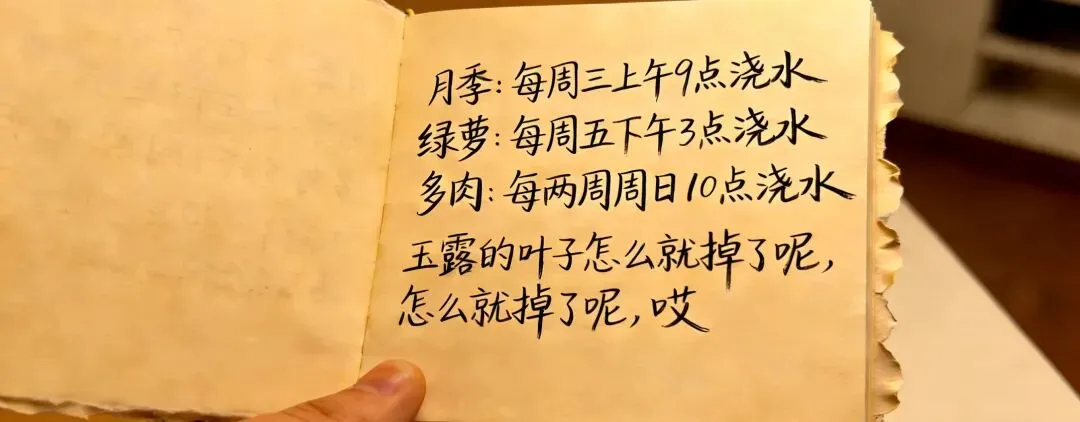 月季：每周三上午9点浇水
绿萝：每周五下午3点浇水
多肉：每两周周日10点浇水
玉露的叶子怎么就掉了呢，
怎么就掉了呢，哎